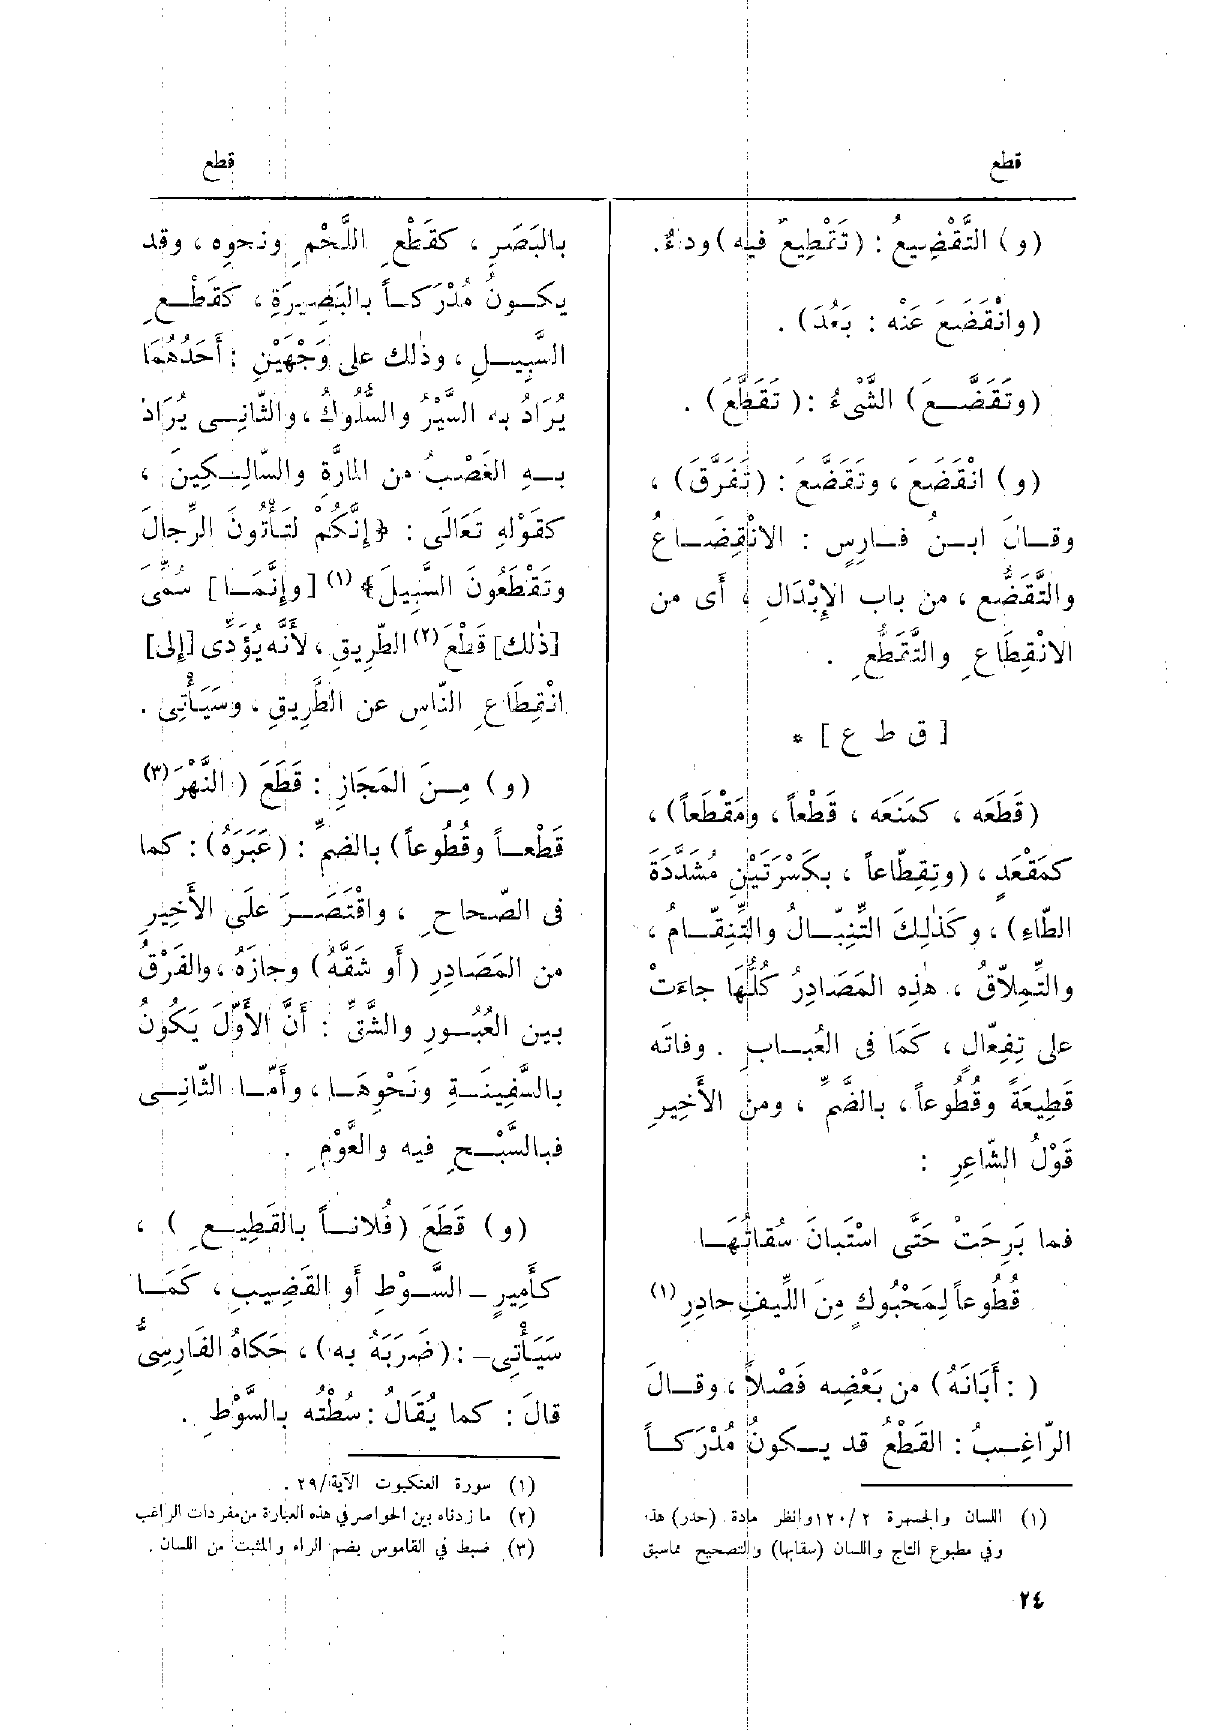 قطع
(و) التَّقْضِيعُ : (تَقْطِيعٌ فيه) وداءٌ.
(وانْقَضَعَ عَنْه : بَعُدَ) .
(وتَقَضَّـع) الشَّىءُ : (تَقَطَّعَ) .
(و) انْقَضَعَ ، وتَقَضَّعَ : (تَفَرَّقَ) ،
وقـالَ ابـنُ فـارِسٍ : الانْقِضَـاعُ
والتَّقَضُّع ، من باب الإِبْدَالِ ، أى من
الانْقِطَاعِ والتَّقَطُّعِ .
[ ق ط ع ] *
(قَطَعَه ، كمَنَعَه ، قَطْعاً ، ومَقْطَعاً) ،
كمَقْعَدٍ ، (وتِقِطّاعاً ، بكَسْرَتَيْنِ مُشَدَّدَةَ
الطّاءِ) ، وكَذٰلِكَ التِّنِبّـالُ والتِّنِقّـامُ ،
والتِّمِلاّقُ ، هٰذِه المَصَادِرُ كُلُّهَا جاءَتْ
على تِفِعّالٍ ، كَمَا فى العُبـابِ . وفاتَه
قَطِيعَةً وقُطُوعاً ، بالضَّمِّ ، ومن الأَخِيرِ
قَوْلُ الشّاعِرِ :
فما بَرِحَتْ حَتَّى اسْتَبانَ سُقاتُهَـا
قُطُوعاً لِمَحْبُوكٍ مِنَ اللِّيفِ حادِرِ (١)
( : أَبَانَهُ) من بَعْضِه فَصْلاً ، وقـالَ
الرّاغِـبُ : القَطْعُ قد يـكونُ مُدْرَكـاً
(١) اللسان والجمهرة ١٢٠/٢ وانظر مادة (حدر) هذا
وفي مطبوع التاج واللسان (سقابها) والتصحيح مماسبق
٢٤
قطع
بالبَصَرِ ، كقَطْعِ اللَّحْمِ ونحوِه ، وقد
يكـونُ مُدْرَكـاً بالبَصِيرَةِ ، كقَطْـعِ
السَّبِيـلِ ، وذٰلك على وَجْهَيْنِ : أَحَدُهُمَا
يُرَادُ به السَّيْرُ والسُّلُوكُ ، والثّانِـى يُرَادُ
بـهِ الغَصْبُ من المارَّةِ والسّالِـكِينَ ،
كقَوْلهِ تَعَالَى : ﴿إِنَّكُمْ لَتَأْتُونَ الرِّجالَ
وتَقْطَعُونَ السَّبِيلَ﴾ (١) [وإِنَّمَـا] سُمِّىَ
[ذٰلك] قَطْعَ (٢) الطَّرِيقِ ، لأَنَّه يُؤَدِّى [إلى]
انْقِطَاعِ النّاسِ عن الطَّرِيقِ ، وسَيَأْتِى .
(و) مِـنَ المَجَازِ : قَطَعَ ( النَّهْرَ (٣)
قَطْعـاً وقُطُوعاً) بالضمِّ : (عَبَرَهُ) : كما
فى الصّحاحِ ، واقْتَصَـرَ عَلَى الأَخِيرِ
من المَصَادِرِ (أَو شَقَّهُ) وجازَهُ ، والفَرْقُ
بين العُبُـورِ والشَّقِّ : أَنَّ الأَوَّلَ يَكُونُ
بالسَّفِينَـةِ ونَحْوِهَـا ، وأَمّـا الثّانِـى
فبالسَّبْـحِ فيه والعَوْمِ .
(و) قَطَعَ (فُلانـاً بالقَطِيـعِ ) ،
كأَمِيرٍ ـ السَّـوْطِ أَو القَضِيبِ ، كَمَـا
سَيَأْتِى ـ : (ضَرَبَهُ به) ، حَكاهُ الفَارِسِىُّ
قالَ : كما يُقَالُ : سُطْتُه بالسَّوْطِ .
(١) سورة العنكبوت الآية/٢٩ .
(٢) ما زدناه بين الحواصر في هذه العبارة من مفردات الراغب
(٣) ضبط في القاموس بضم الراء والمثبت من اللسان .